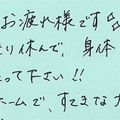 お疲れ様です
り休んで、身体
って下さい!!
ームで、すてきな